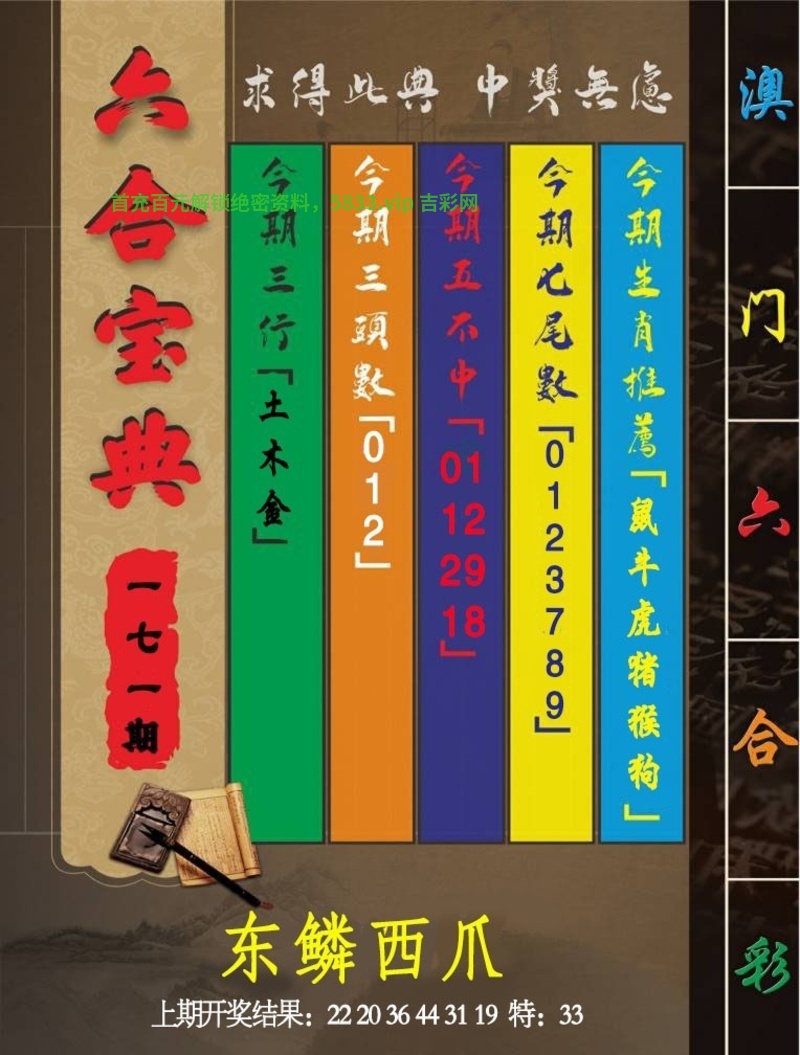 六合宝典
一七一期
求得此典 中獎無慮
首充百元解锁绝密资料，5833.vip 吉彩网
今期三行「土木金」
今期三頭數「012」
今期五不中「01 12 29 18」
今期七尾數「0123789」
今期生肖推薦「鼠牛虎猪猴狗」
澳门六合彩
东鳞西爪
上期开奖结果：22 20 36 44 31 19 特：33